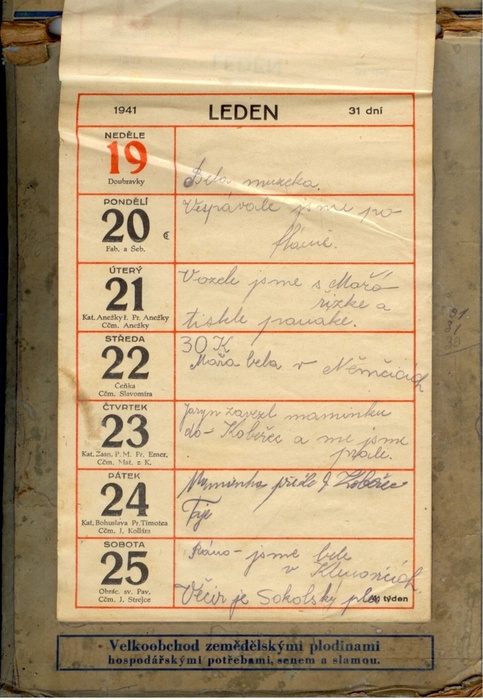 1941 LEDEN 31 dní
NEDĚLE
19
Doubravky
Bela muzeka.
PONDĚLÍ
20
Fab. a Šeb.
Vespávale jsme po
flámě.
ÚTERÝ
21
Kat. Anežky ř. Pr. Anežky
Ččm. Anežky
Vozele jsme s Mařó
řízke a
tiskle panáke.
STŘEDA
22
Čeňka
Ččm. Slavomíra
30 K
Mařa bela v Němčicích
ČTVRTEK
23
Kat. Zasn. P. M. Fr. Emer.
Ččm. Mat. z K.
zavezl maminku
do Kobeřec a me jsme
prale.
PÁTEK
24
Kat. Bohuslava Pr. Timotea
Ččm. J. Kollára
Maminka z Kobeřec
SOBOTA
25
Obrác. sv. Pav.
Ččm. J. Strejce
Ráno jsme bele
v Klenovicích.
Večír je Sokolský ples
týden
31
30
Velkoobchod zemědělskými plodinami
hospodářskými potřebami, senem a slamou.